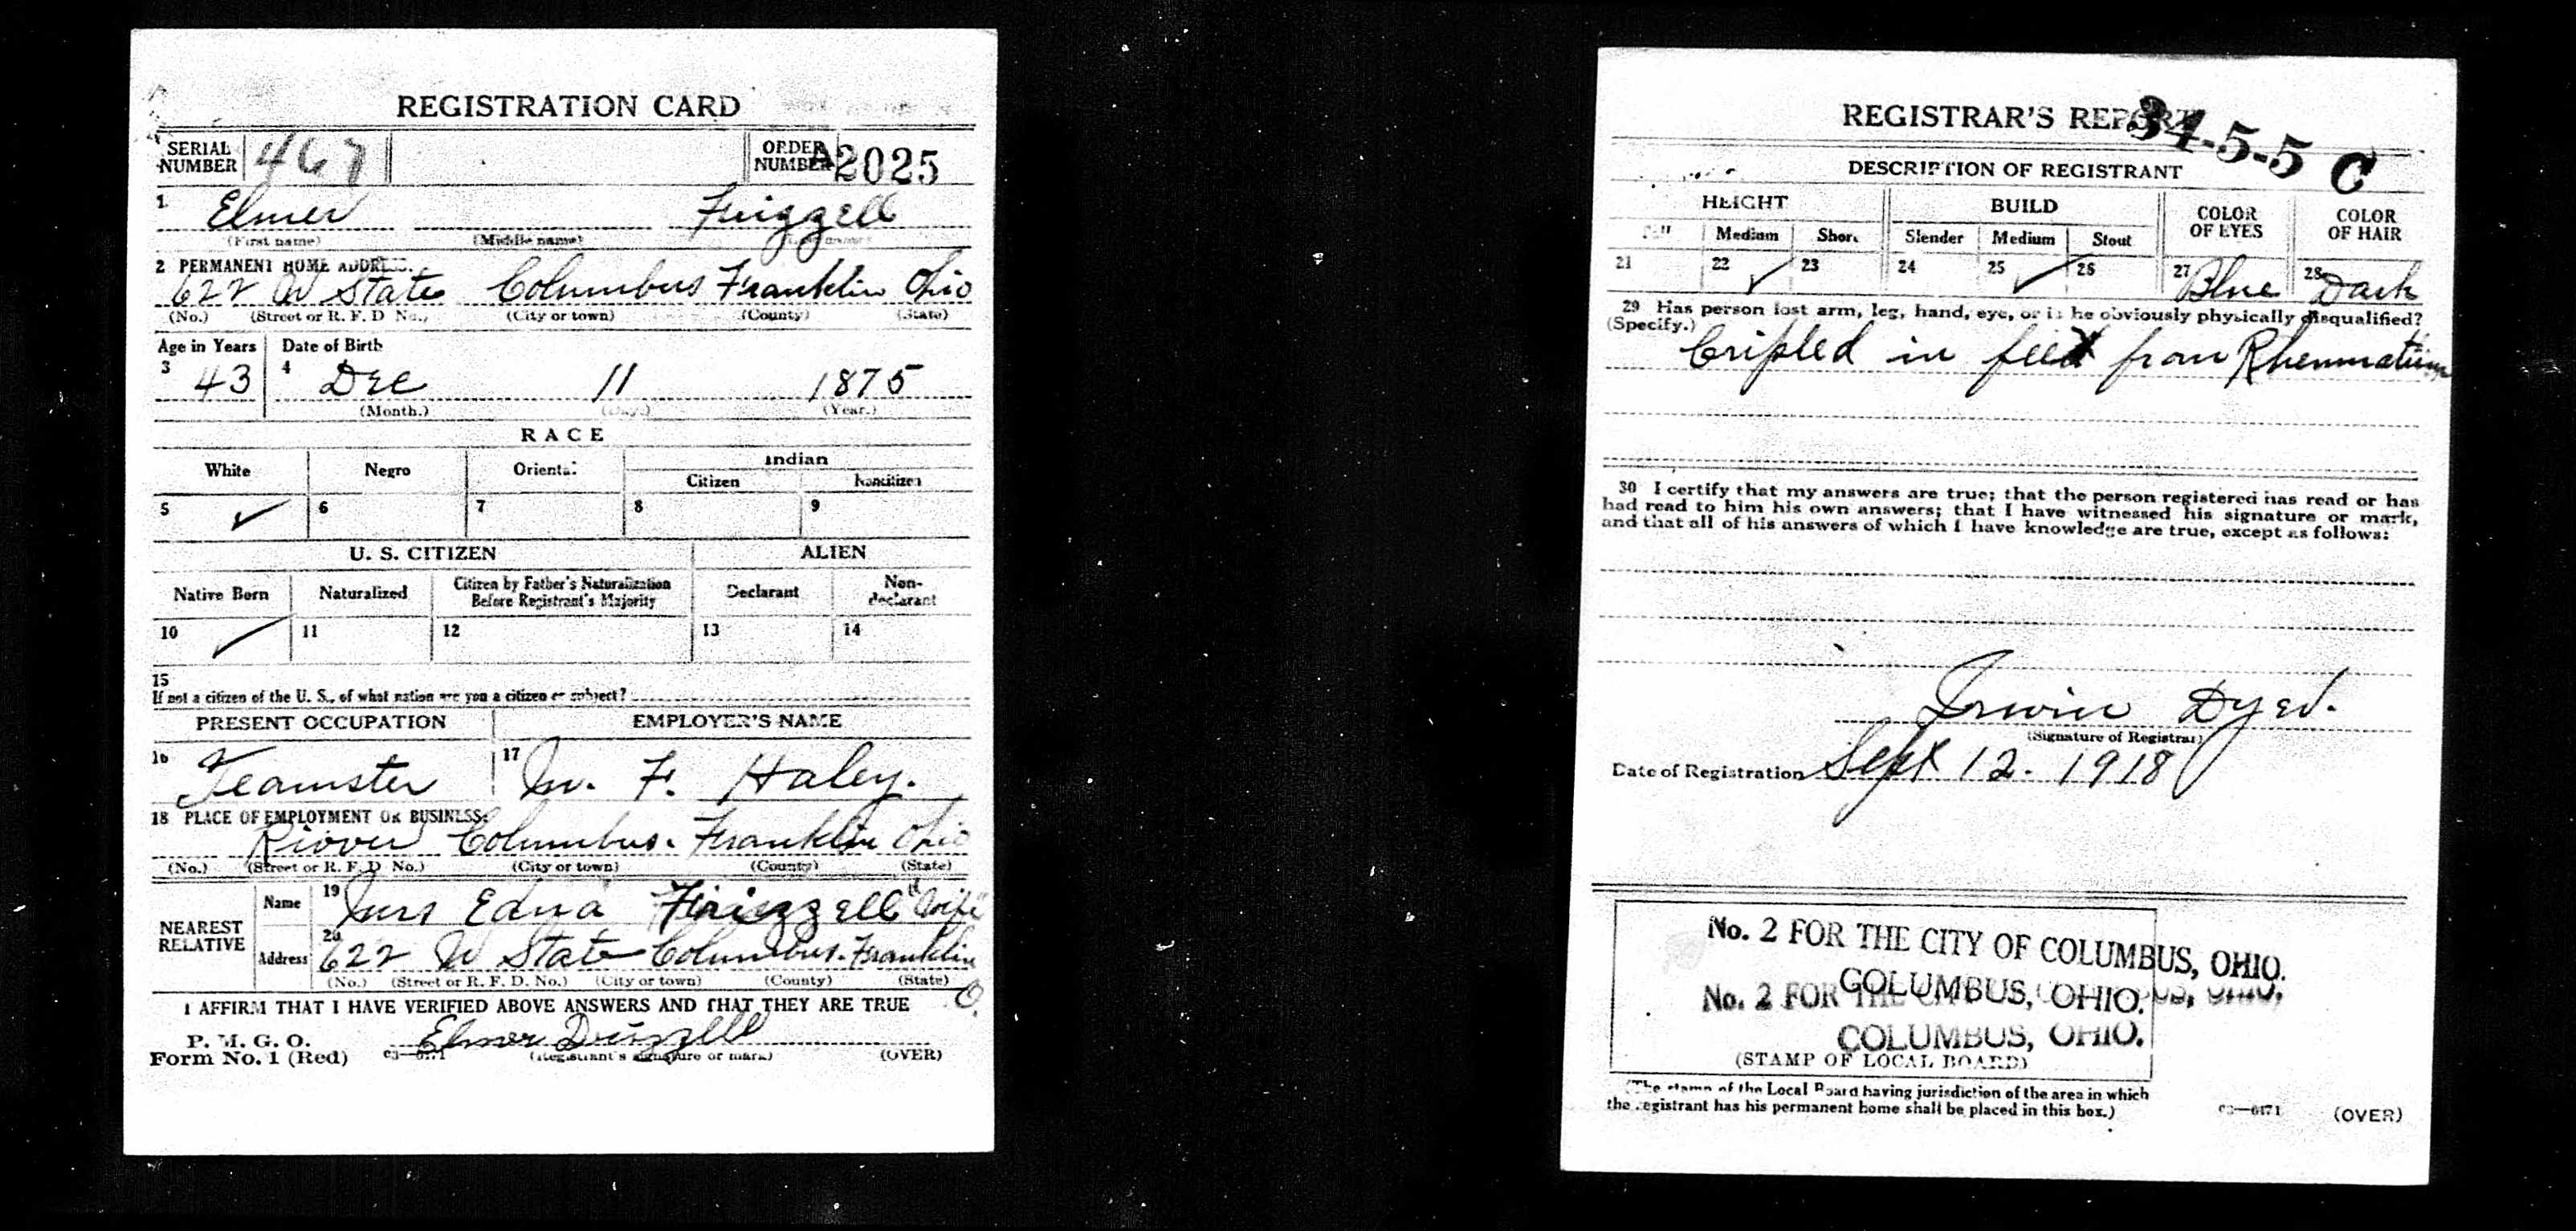 REGISTRATION CARD
SERIAL NUMBER 467 ORDER NUMBER A2025
1 Elmer Frizzell
(First name) (Middle name) (Last name)
2 PERMANENT HOME ADDRESS:
622 W State Columbus Franklin Ohio
(No.) (Street or R. F. D. No.) (City or town) (County) (State)
Age in Years Date of Birth
3 43 4 Dec 11 1875
(Month.) (Day.) (Year.)
RACE
White Negro Oriental Indian
Citizen Noncitizen
5 ✓ 6 7 8 9
U. S. CITIZEN ALIEN
Native Born Naturalized Citizen by Father's Naturalization Before Registrant's Majority Declarant Non-declarant
10 ✓ 11 12 13 14
15
If not a citizen of the U. S., of what nation are you a citizen or subject?
PRESENT OCCUPATION EMPLOYER'S NAME
16 Teamster 17 M. F. Haley.
18 PLACE OF EMPLOYMENT OR BUSINESS:
Columbus. Franklin Ohio
(No.) (Street or R. F. D. No.) (City or town) (County) (State)
NEAREST RELATIVE Name 19 Mrs Edna Frizzell "Wife"
Address 20 622 W State Columbus. Franklin O.
(No.) (Street or R. F. D. No.) (City or town) (County) (State)
I AFFIRM THAT I HAVE VERIFIED ABOVE ANSWERS AND THAT THEY ARE TRUE
P. M. G. O.
Form No. 1 (Red) 03—6171 Elmer (Registrant's signature or mark) (OVER)
REGISTRAR'S REPORT
34-5-5 C
DESCRIPTION OF REGISTRANT
HEIGHT BUILD COLOR OF EYES COLOR OF HAIR
Tall Medium Short Slender Medium Stout
21 22 ✓ 23 24 25 ✓ 26 27 Blue 28 Dark
29 Has person lost arm, leg, hand, eye, or is he obviously physically disqualified?
(Specify.)
Cripled in feet from Rheumatism
30 I certify that my answers are true; that the person registered has read or has
had read to him his own answers; that I have witnessed his signature or mark,
and that all of his answers of which I have knowledge are true, except as follows:
Irwin Dyer.
(Signature of Registrar)
Date of Registration Sept 12. 1918
No. 2 FOR THE CITY OF COLUMBUS, OHIO.
COLUMBUS, OHIO.
No. 2 FOR THE CITY OF COLUMBUS, OHIO.
COLUMBUS, OHIO.
(STAMP OF LOCAL BOARD)
(The stamp of the Local Board having jurisdiction of the area in which
the registrant has his permanent home shall be placed in this box.)
03—6171 (OVER)